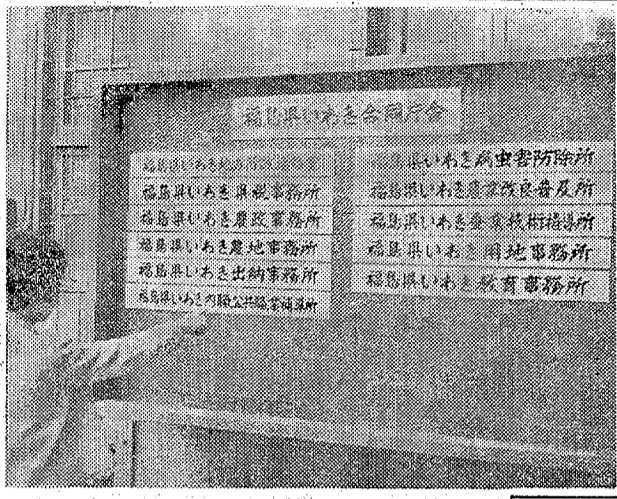 福島県いわき合同庁舎
福島県いわき
福島県いわき県税事務所
福島県いわき農政事務所
福島県いわき農地事務所
福島県いわき出納事務所
福島県いわき内郷公共職業補導所
県いわき病虫害防除所
福島県いわき農業改良普及所
福島県いわき蚕業技術指導所
福島県いわき用地事務所
福島県いわき教育事務所